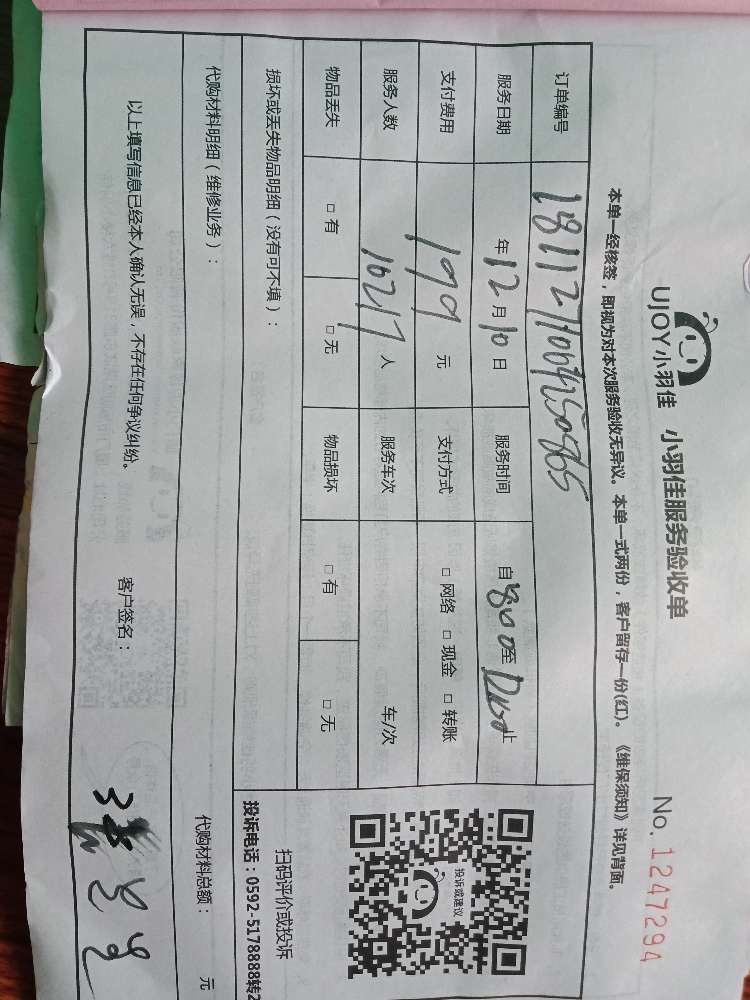 UJOY小羽佳 小羽佳服务验收单 No. 1247294
本单一经核签，即视为对本次服务验收无异议。本单一式两份，客户留存一份(红)。《维保须知》详见背面。
订单编号
服务日期 年12月10日 服务时间 自8:00至12:00止
支付费用 199元 支付方式 □ 网络 □ 现金 □ 转账
服务人数 人 服务车次 车/次
物品丢失 □ 有 □ 无 物品损坏 □ 有 □ 无
投诉或建议
扫码评价或投诉
投诉电话：0592-5178888转2
损坏或丢失物品明细（没有可不填）：
代购材料明细（维修业务）： 代购材料总额： 元
以上填写信息已经本人确认无误，不存在任何争议纠纷。 客户签名：